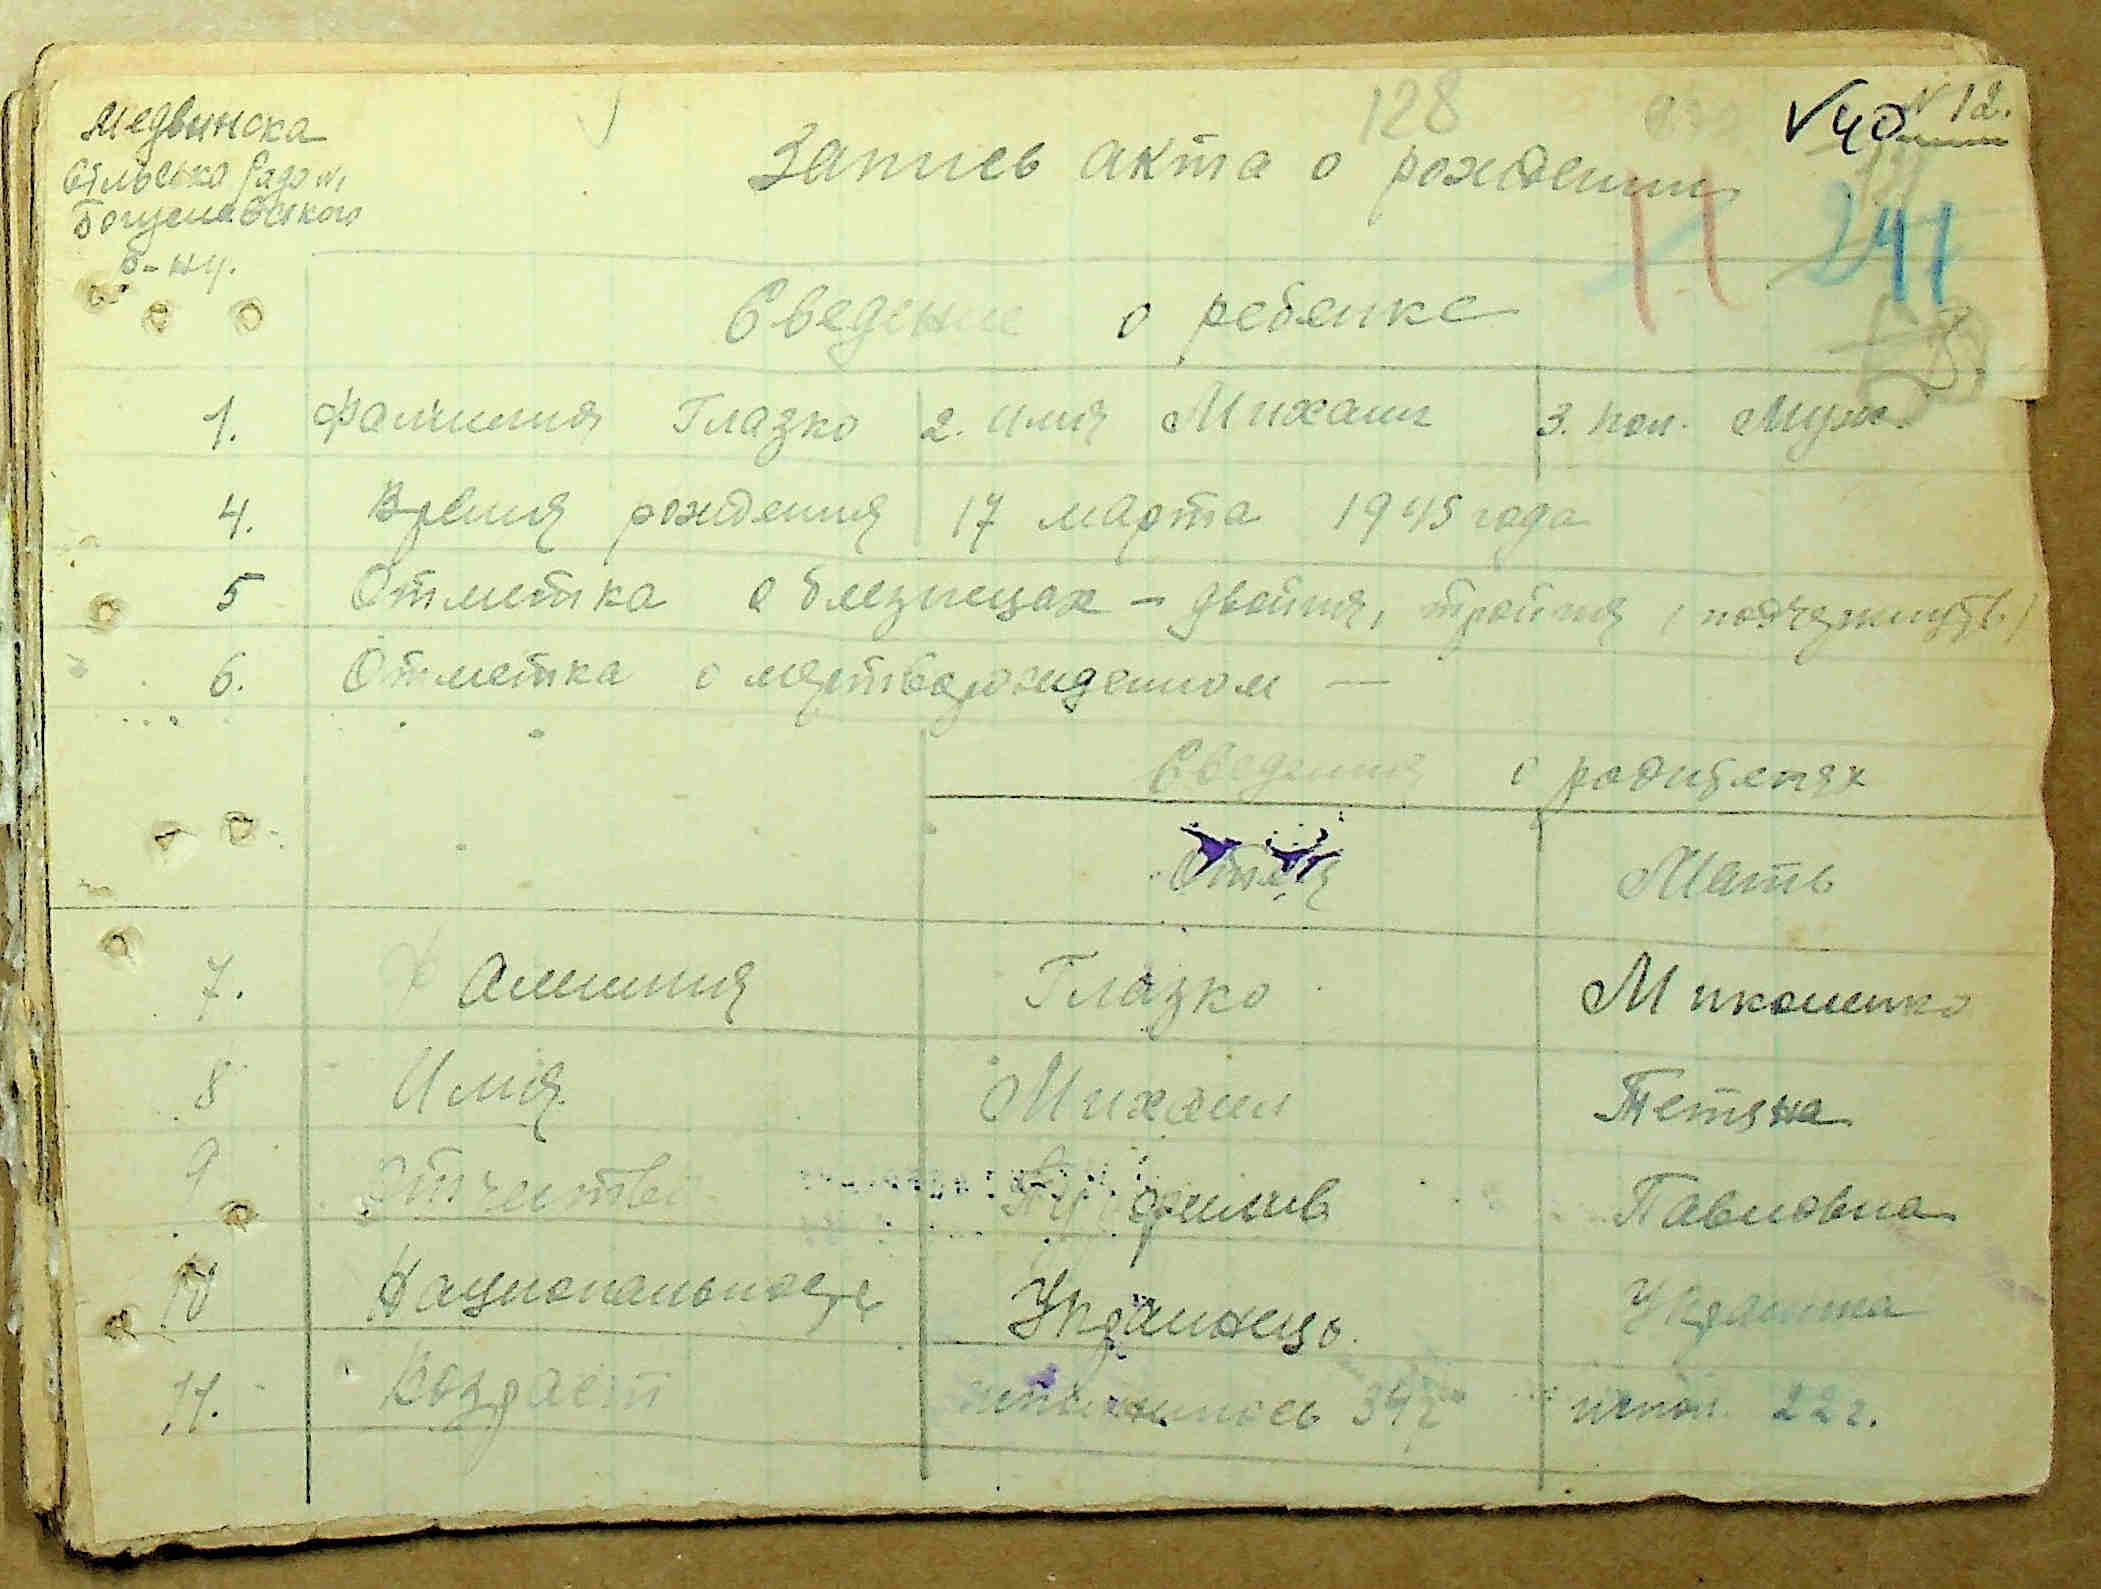 Медвинска
Сільська Рада
Богуславського
р-ну.
128
√40
N 12.
Запись акта о рождении
11
241
Сведение о ребенке
1. Фамилия Глазко 2. Имя Михаил 3. пол. Муж.
4. Время рождения 17 марта 1945 года
5 Отметка о близнецах - двойня, тройня (подчеркнуть)
6. Отметка о мертворожденном —
Сведения о родителях
Отец Мать
7. Фамилия Глазко
8 Имя Михаил Тетяна
9 Отчество Павловна
10 Национальность Украинець. Украинка
11. Возраст исполнилось 34 г испол. 22 г.